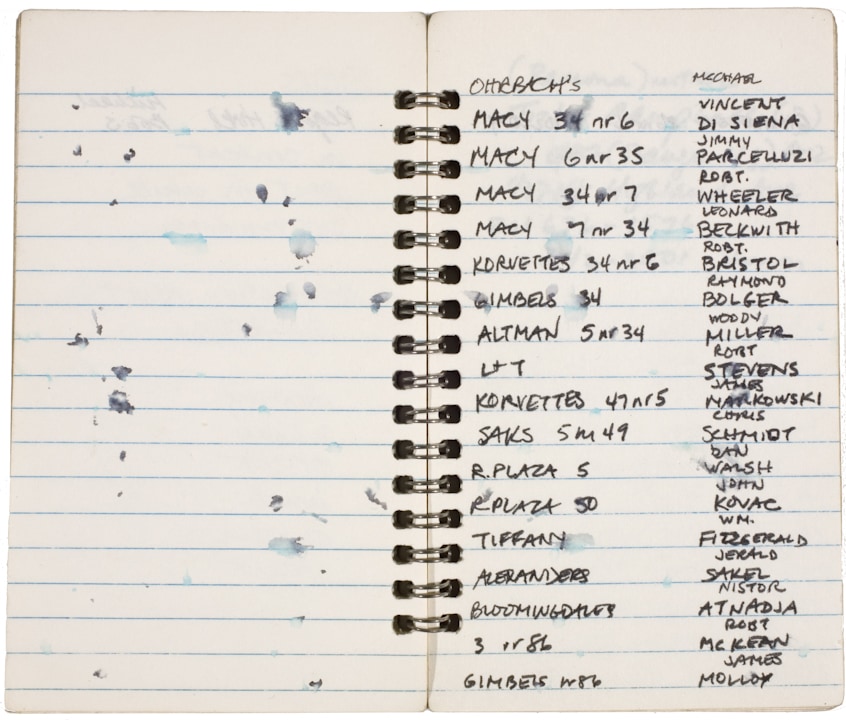 MICHAEL
OHRBACH's
VINCENT
MACY 34 nr 6 DI SIENA
JIMMY
MACY 6 nr 35 PARCELLUZI
ROBT.
MACY 34 nr 7 WHEELER
LEONARD
MACY 7 nr 34 BECKWITH
ROBT.
KORVETTES 34 nr 6 BRISTOL
RAYMOND
GIMBELS 34 BOLGER
WOODY
ALTMAN 5 nr 34 MILLER
ROBT
L+T STEVENS
JAMES
KORVETTES 47 nr 5 MARKOWSKI
CHRIS
SAKS 5 nr 49 SCHMIDT
DAN
R.PLAZA 5 WALSH
JOHN
R.PLAZA 50 KOVAC
WM.
TIFFANY FITZGERALD
JERALD
ALEXANDERS SAKEL
NISTOR
BLOOMINGDALES ATNADJA
ROBT
3 nr 86 MCKEAN
JAMES
GIMBELS nr 86 MOLLOY